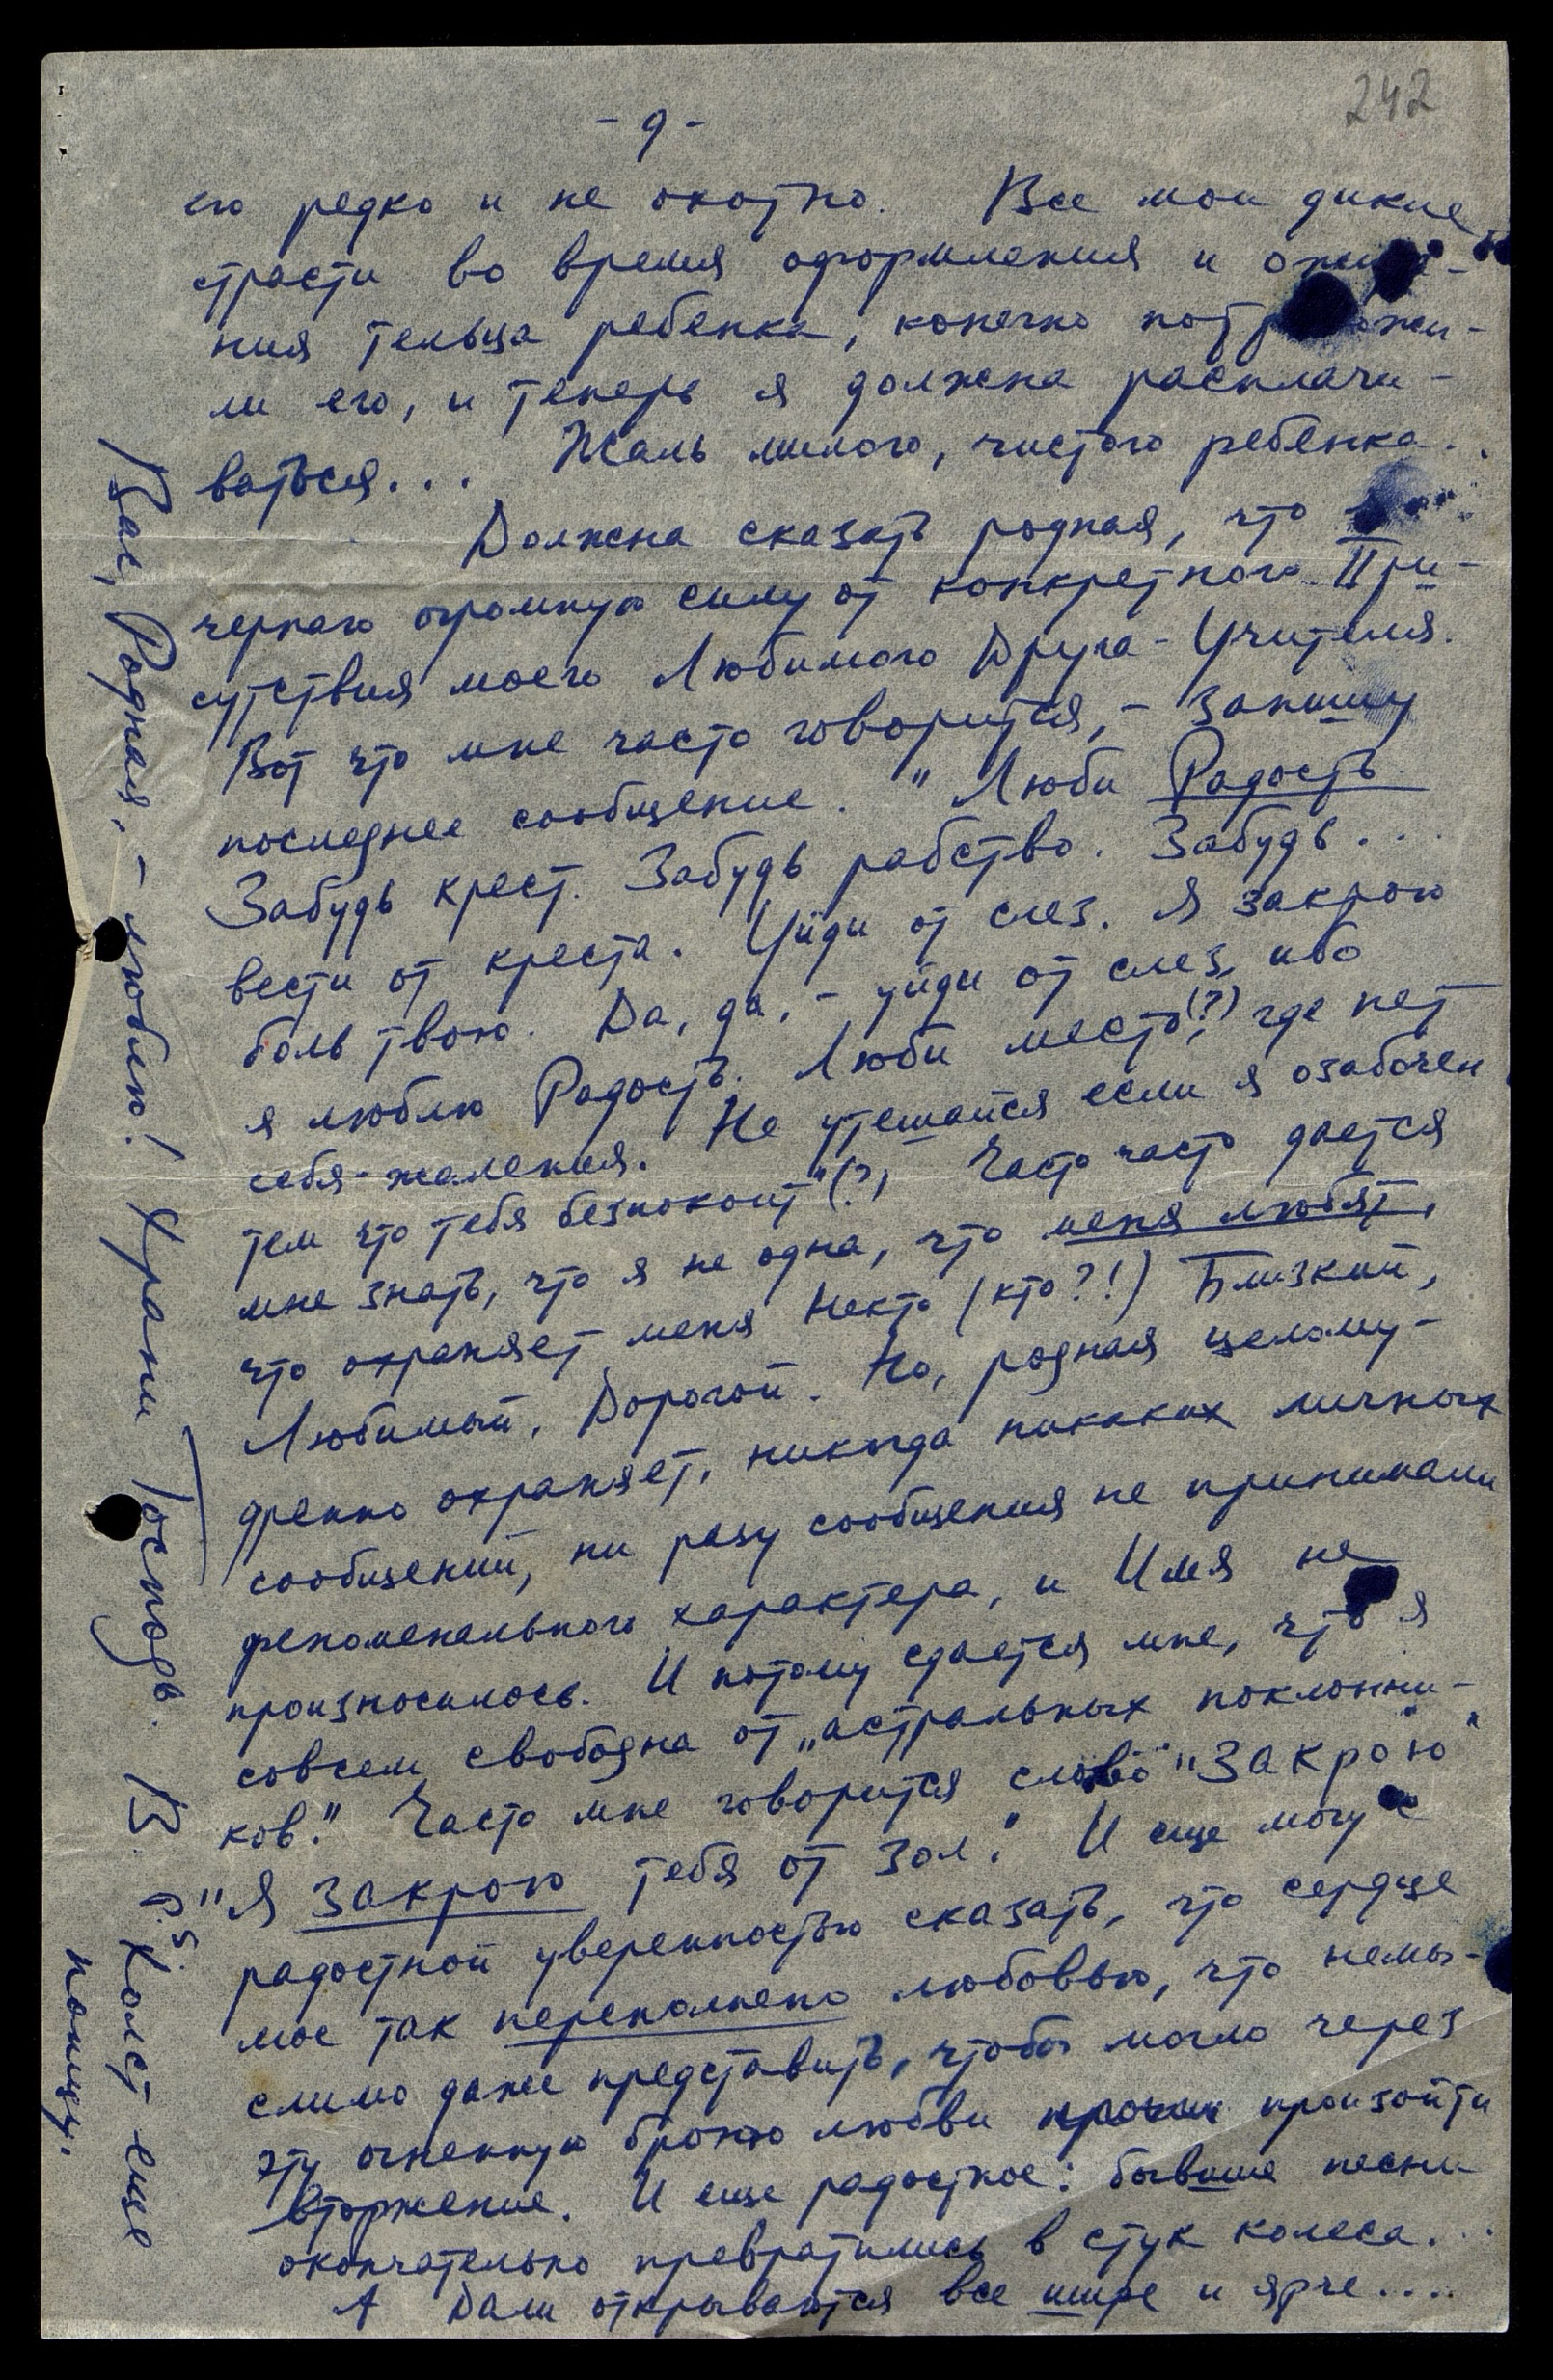 242
- 9 -
его редко и не охотно. Все мои дикие
страсти во время оформления и
ния тельца ребенка, конечно
ли его, и теперь я должна расплачи-
ваться... Жаль милого, чистого ребенка..
Должна сказать родная, что
черпаю огромную силу от конкретного При-
сутствия моего Любимого Друга-Учителя.
Вот что мне часто говорится, - запишу
последнее сообщение. "Люби Радость.
Забудь крест. Забудь рабство. Забудь...
вести от креста. Уйди от слез. Я закрою
боль твою. Да, да, - уйди от слез, ибо
я люблю Радость. Люби место(?), где нет
себя-жаления. Не утешайся если я озабочен
тем что тебя безпокоит"(?) Часто часто дается
мне знать, что я не одна, что меня любят,
что охраняет меня Некто (кто?!) Близкий,
Любимый, Дорогой. Но, родная целому-
дренно охраняет, никогда никаких личных
сообщений, ни разу сообщения не принимали
феноменального характера, и Имя не
произносилось. И потому сдается мне, что я
совсем свободна от „астральных поклонни-
ков." Часто мне говорится слово "закрою"
"Я закрою тебя от зол." И еще могу с
радостной уверенностью сказать, что сердце
мое так переполнено любовью, что немы-
слимо даже представить, чтобы могло через
эту огненную броню любви произойти
вторжение. И еще радостное: бывшие песни
окончательно превратились в стук колеса...
А Дали открываются все шире и ярче....
Вас, Родная, - люблю! Храни Господь. В.
P.S. Холст еще
поищу.